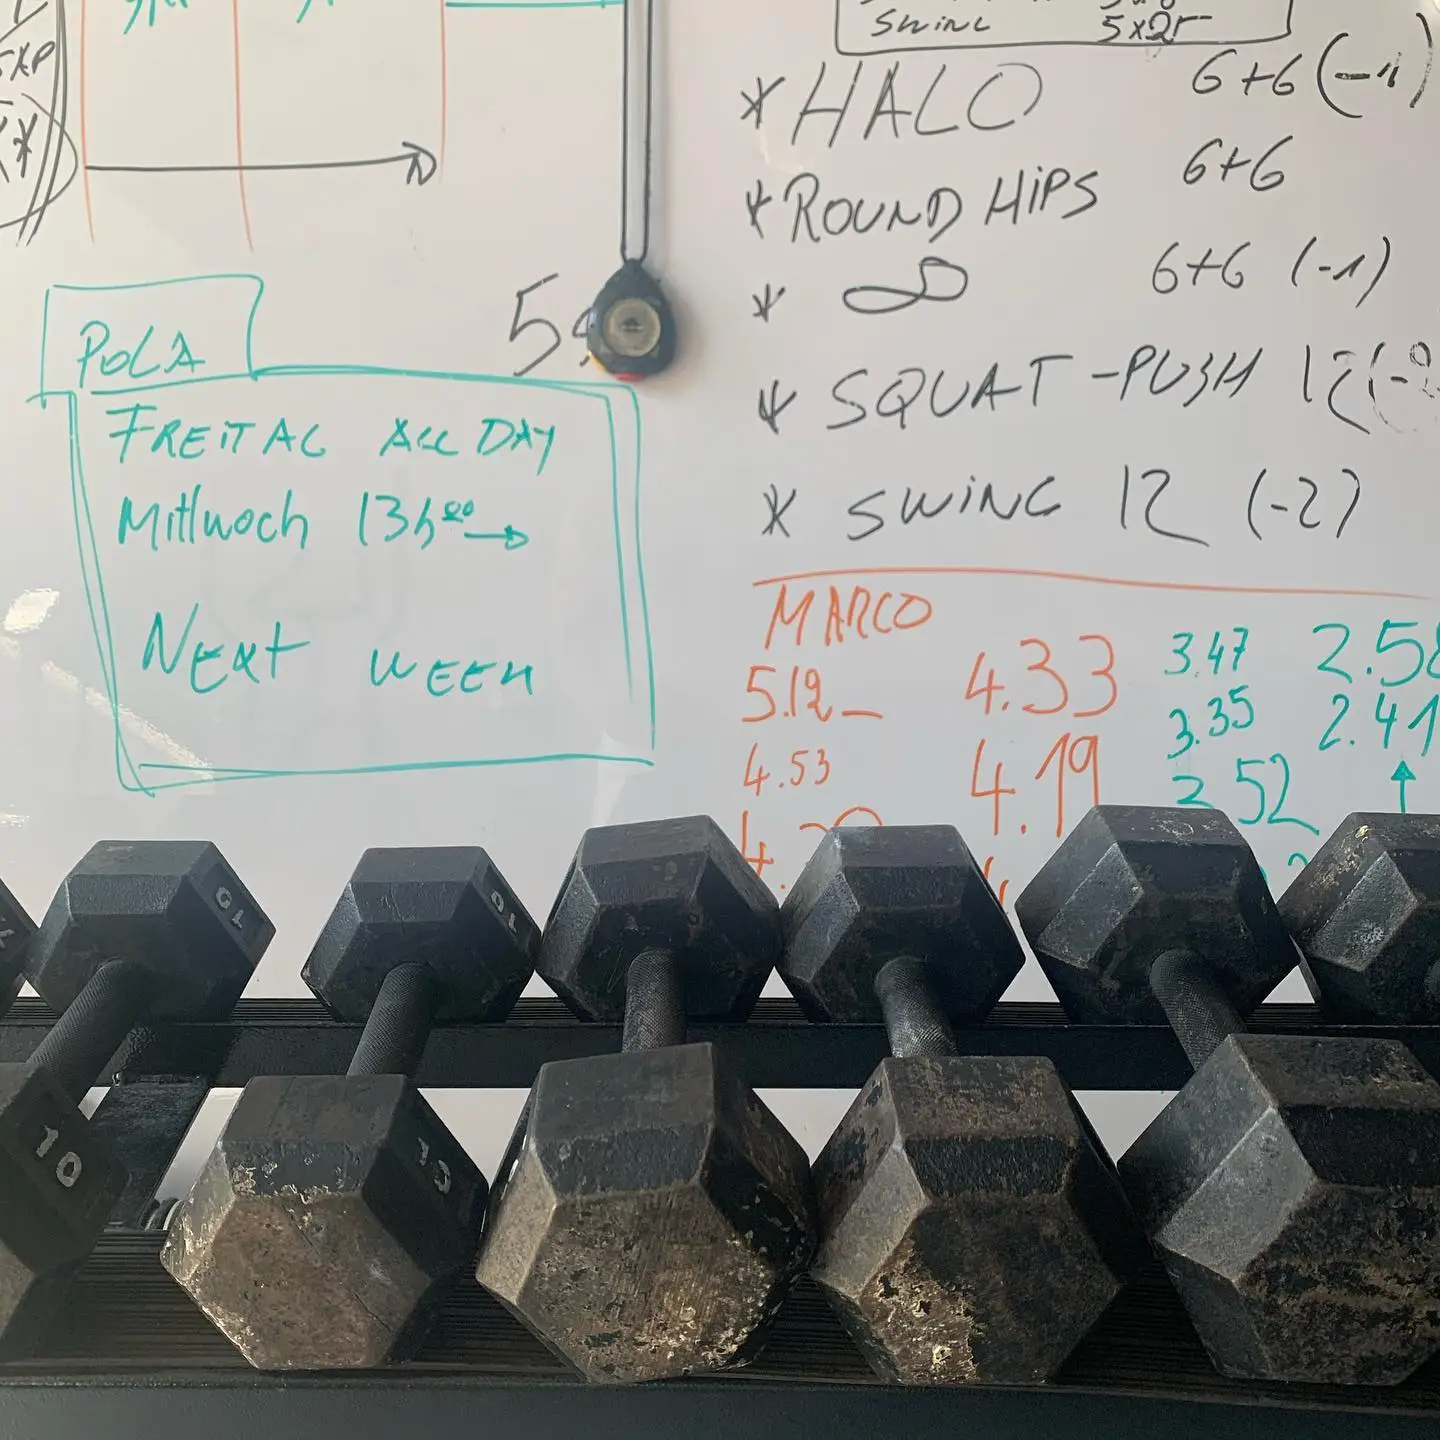 SWING 5x25
* HALO 6+6 (-1)
* ROUND HIPS 6+6
* ∞ 6+6 (-1)
* SQUAT-PUSH 12
* SWING 12 (-2)
POLA
FREITAG ALL DAY
Mittwoch 13h00 →
NEXT WEEK
MARCO
5.12 4.33 3.47
4.53 4.19 3.35 2.41
52
10
10
10